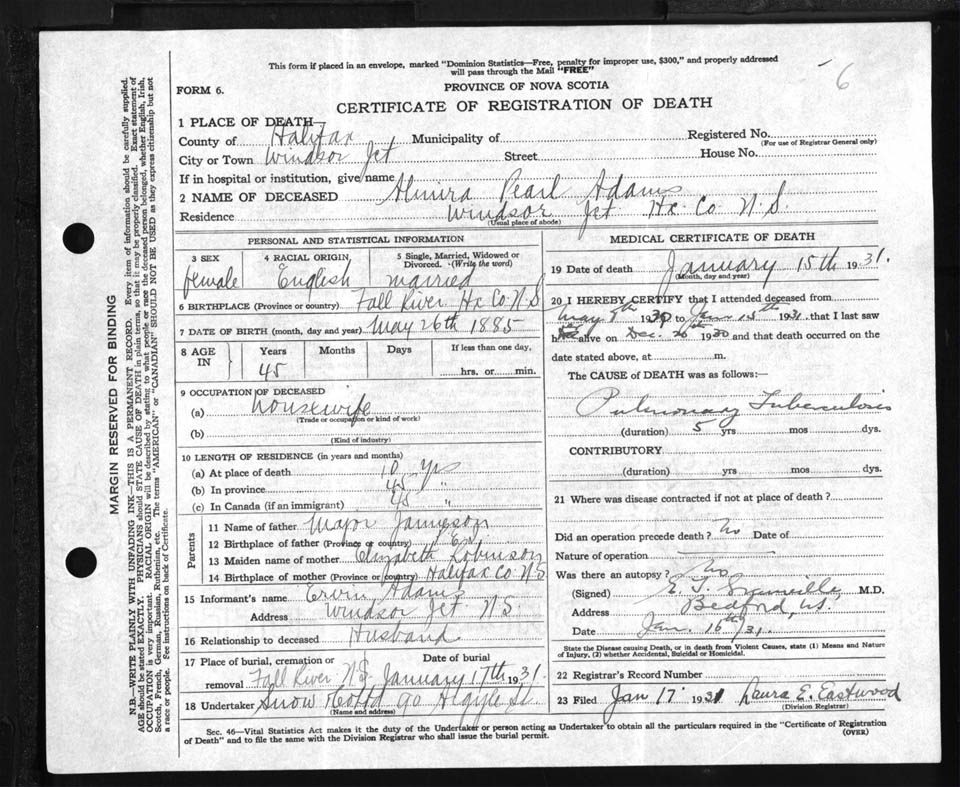 This form if placed in an envelope, marked "Dominion Statistics—Free, penalty for improper use, $300," and properly addressed
will pass through the Mail "FREE"
6
FORM 6.
PROVINCE OF NOVA SCOTIA
CERTIFICATE OF REGISTRATION OF DEATH
1 PLACE OF DEATH—
County of Halifax Municipality of Registered No.
(For use of Registrar General only)
City or Town Windsor Jct Street House No.
If in hospital or institution, give name
2 NAME OF DECEASED Almira Pearl Adams
Residence Windsor Jct Hx Co N.S.
(Usual place of abode)
PERSONAL AND STATISTICAL INFORMATION
3 SEX 4 RACIAL ORIGIN 5 Single, Married, Widowed or
Divorced. (Write the word)
female English married
6 BIRTHPLACE (Province or country) Fall River Hx Co N S
7 DATE OF BIRTH (month, day and year) May 26th 1885
8 AGE IN Years Months Days If less than one day,
45 hrs. or min.
9 OCCUPATION OF DECEASED
(a) housewife
(Trade or occupation or kind of work)
(b)
(Kind of industry)
10 LENGTH OF RESIDENCE (in years and months)
(a) At place of death 10 Yrs
(b) In province 45 "
(c) In Canada (if an immigrant) 45 "
Parents
11 Name of father Major Jamieson
12 Birthplace of father (Province or country)
13 Maiden name of mother Elizabeth Robinson
14 Birthplace of mother (Province or country) Halifax Co N S
15 Informant's name Ervin Adams
Address Windsor Jct N S.
16 Relationship to deceased Husband
17 Place of burial, cremation or Date of burial
removal Fall River N S January 17th 1931
18 Undertaker Snow 90 Argyle St.
(Name and address)
MEDICAL CERTIFICATE OF DEATH
19 Date of death January 15th 1931.
(Month, day and year)
20 I HEREBY CERTIFY that I attended deceased from
May 8th 1930 to Jan. 15th 1931 that I last saw
h alive on Dec. 26th 1930 and that death occurred on the
date stated above, at m.
The CAUSE of DEATH was as follows:—
Pulmonary Tuberculosis
(duration) 5 yrs mos dys.
CONTRIBUTORY
(duration) yrs mos dys.
21 Where was disease contracted if not at place of death?
Did an operation precede death? No Date of
Nature of operation
Was there an autopsy? No
(Signed) M.D.
Address Bedford, N.S.
Date Jan. 16th/31.
State the Disease causing Death, or in death from Violent Causes, state (1) Means and Nature
of Injury, (2) whether Accidental, Suicidal or Homicidal.
22 Registrar's Record Number
23 Filed Jan 17 1931 Laura E. Eastwood
(Division Registrar)
Sec. 46—Vital Statistics Act makes it the duty of the Undertaker or person acting as Undertaker to obtain all the particulars required in the "Certificate of Registration
of Death" and to file the same with the Division Registrar who shall issue the burial permit.
(OVER)
MARGIN RESERVED FOR BINDING
N.B.—WRITE PLAINLY WITH UNFADING INK—THIS IS A PERMANENT RECORD. Every item of information should be carefully supplied.
AGE should be stated EXACTLY. PHYSICIANS should STATE CAUSE OF DEATH in plain terms, so that it may be properly classified. Exact statement of
OCCUPATION is very important. RACIAL ORIGIN will be described by stating to what people or race the deceased person belonged, whether English, Irish,
Scotch, French, German, Russian, Ruthenian, etc. The terms "AMERICAN" or "CANADIAN" SHOULD NOT BE USED as they express citizenship but not
a race or people. See instructions on back of Certificate.